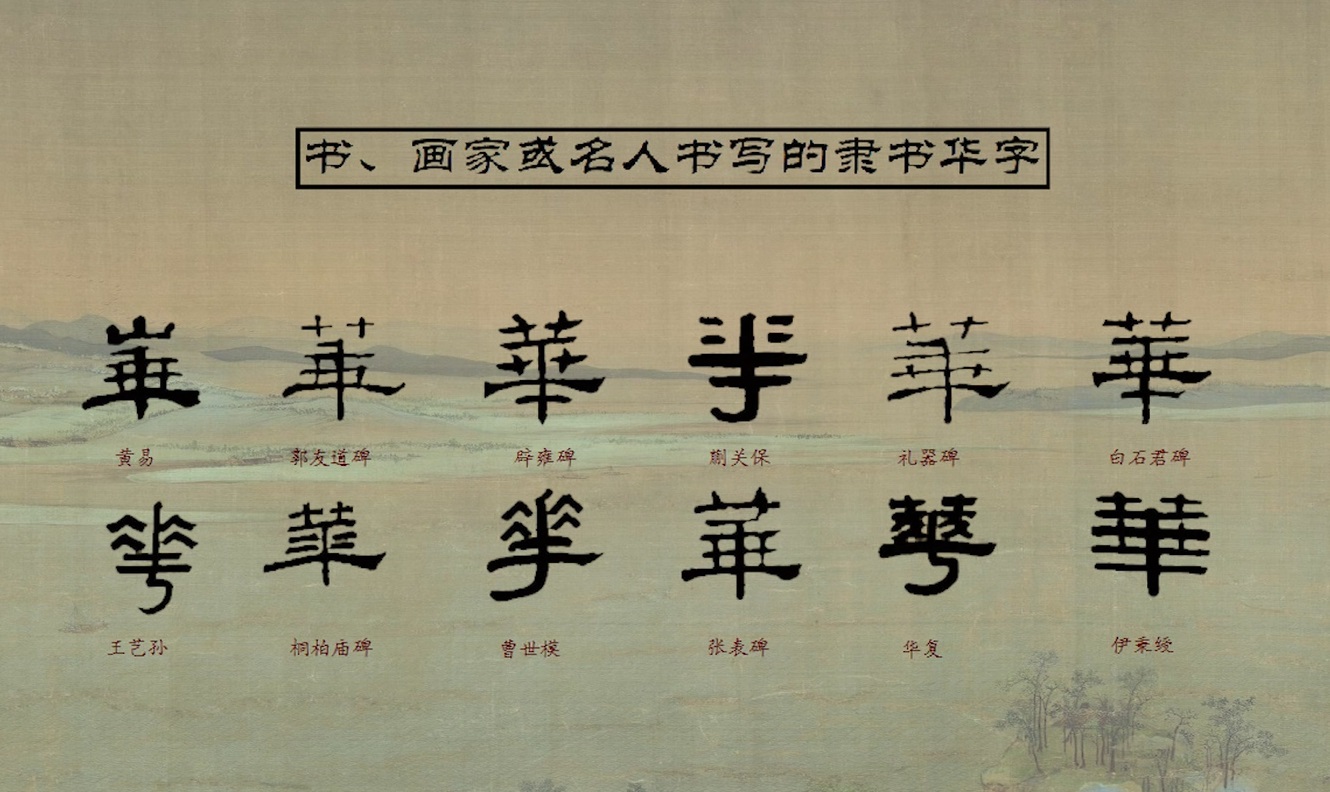 书、画家或名人书写的隶书华字
華 華 華 華 華 華
黄易 郭友道碑 辟雍碑 蒯关保 礼器碑 白石君碑
華 華 華 華 華 華
王艺孙 桐柏庙碑 曹世模 张表碑 华复 伊秉绶